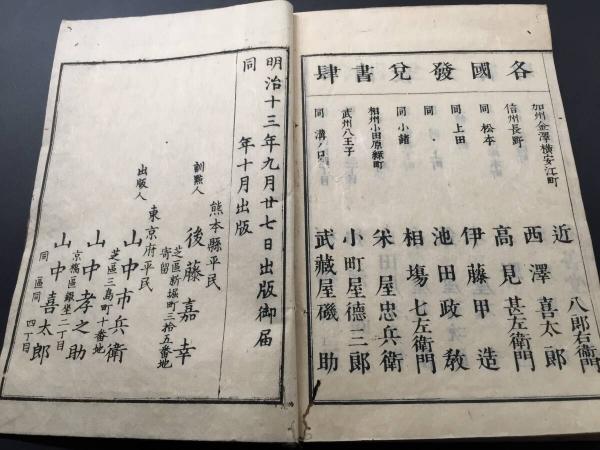 各國發兌書肆
加州金澤橫安江町 近八郎右衛門
信州長野 西澤喜太郎
同松本 高見甚左衛門
同上田 伊藤甲造
同・ 池田政敎
同小諸 相塲七左衛門
相州小田原綠町 栄屋忠兵衛
武州八王子 小町屋德三郎
同溝ノ口 武藏屋磯助
明治十三年九月廿七日出版御届
同年十月出版
熊本縣平民
訓點人 後藤嘉幸
芝區新堀町三拾五番地寄留
東京府平民
出版人 山中市兵衛
芝區三島町十番地
山中孝之助
京橋區銀坐二丁目
山中喜太郎
同區同四丁目